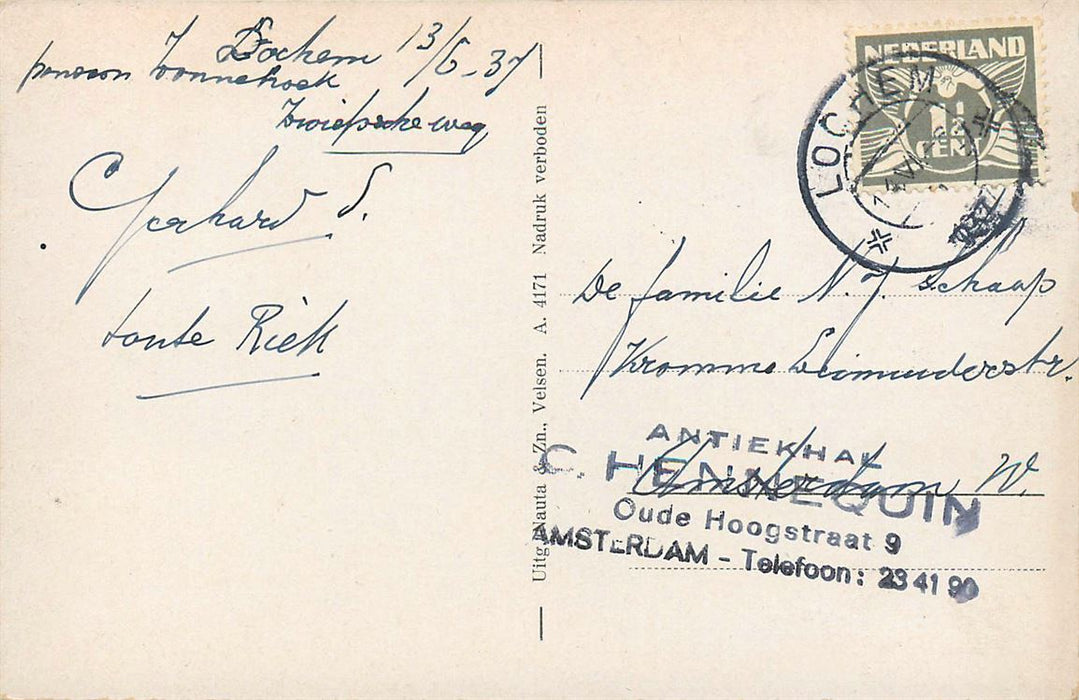 Lochem 13/6-37
pension Zonnehoek
Zwiepscheweg
Gerhard S.
tante Riek
Uitg. Nauta & Zn., Velsen. A. 4171 Nadruk verboden
NEDERLAND
1½
CENT
LOCHEM
De familie N. J. Schaap
Kromme Leimuiderstr.
Amsterdam W.
ANTIEKHAL
C. HENNEQUIN
Oude Hoogstraat 9
AMSTERDAM - Telefoon: 23 41 90